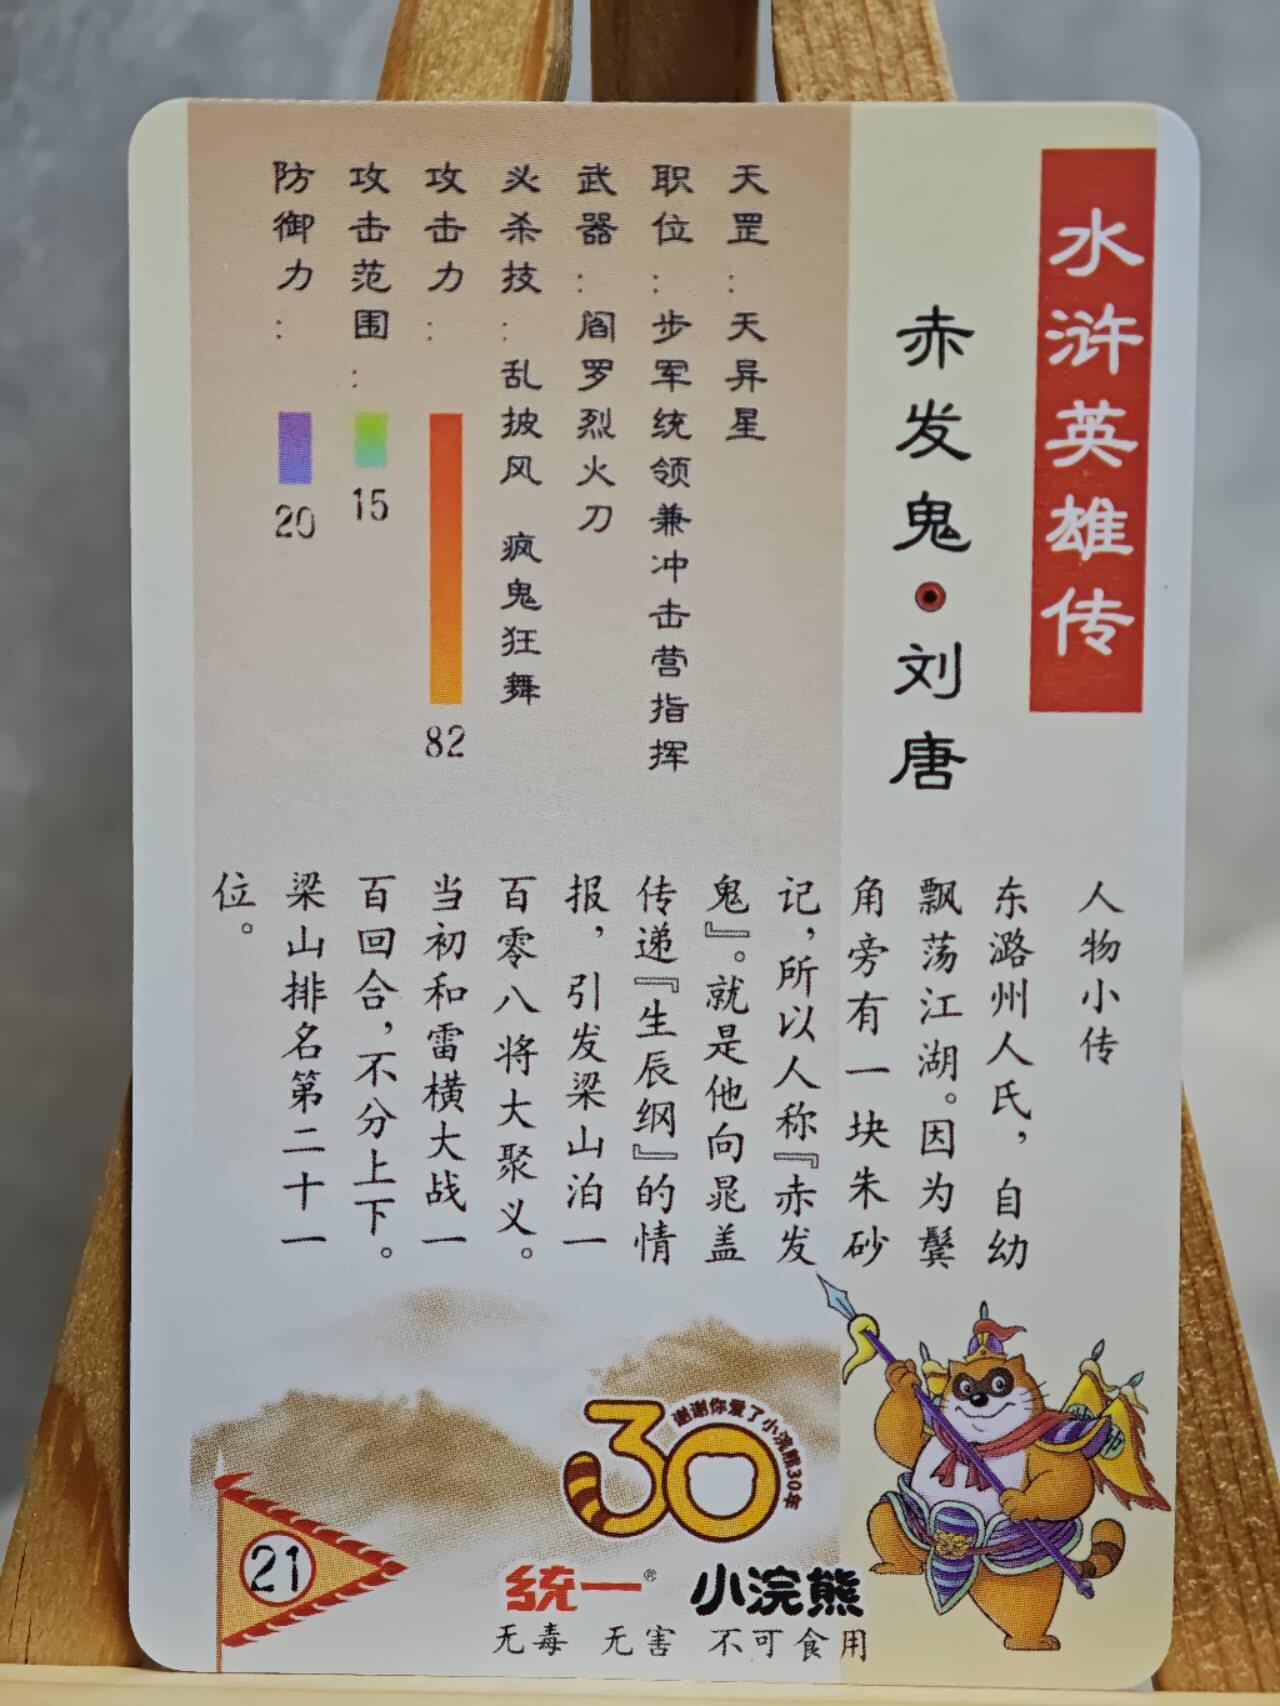 水浒英雄传
赤发鬼·刘唐
天罡：天异星
职位：步军统领兼冲击营指挥
武器：阎罗烈火刀
必杀技：乱披风 疯鬼狂舞
攻击力：82
攻击范围：15
防御力：20
人物小传
东潞州人氏，自幼
飘荡江湖。因为鬓
角旁有一块朱砂
记，所以人称『赤发
鬼』。就是他向晁盖
传递『生辰纲』的情
报，引发梁山泊一
百零八将大聚义。
当初和雷横大战一
百回合，不分上下。
梁山排名第二十一
位。
30
谢谢你爱了小浣熊30年
21
统一® 小浣熊
无毒 无害 不可食用